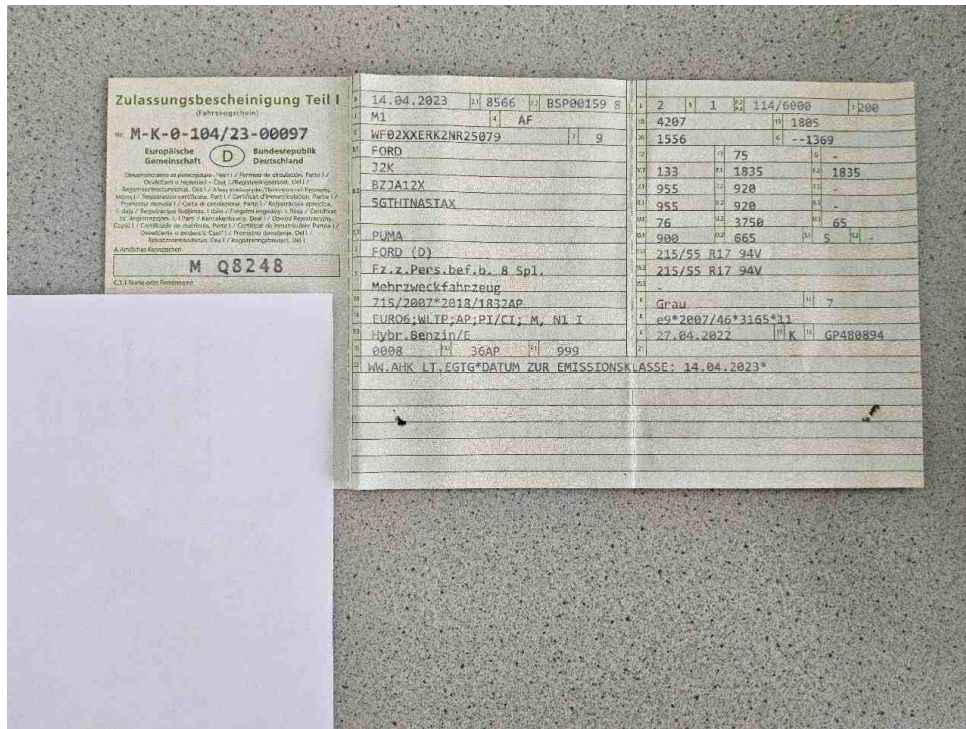 Zulassungsbescheinigung Teil I
(Fahrzeugschein)
Nr. M-K-0-104/23-00097
Europäische Gemeinschaft
D
Bundesrepublik Deutschland
A Amtliches Kennzeichen
M Q8248
14.04.2023 8566 BSP00159 8
M1 AF
WF02XXERK2NR25079 9
FORD
J2K
BZJA12X
5GTHINA5TAX
PUMA
FORD (D)
Fz.z.Pers.bef.b. 8 Spl.
Mehrzweckfahrzeug
715/2007*2018/1832AP
EURO6;WLTP;AP;PI/CI; M, N1 I
Hybr.Benzin/E
0008 36AP 999
WW.AHK LT.EGTG*DATUM ZUR EMISSIONSKLASSE: 14.04.2023*
2 1 114/6000 200
4207 1805
1556 --1369
75 -
133 1835 1835
955 920 -
955 920 -
76 3750 65
900 665 5
215/55 R17 94V
215/55 R17 94V
-
Grau 7
e9*2007/46*3165*11
27.04.2022 K GP480894